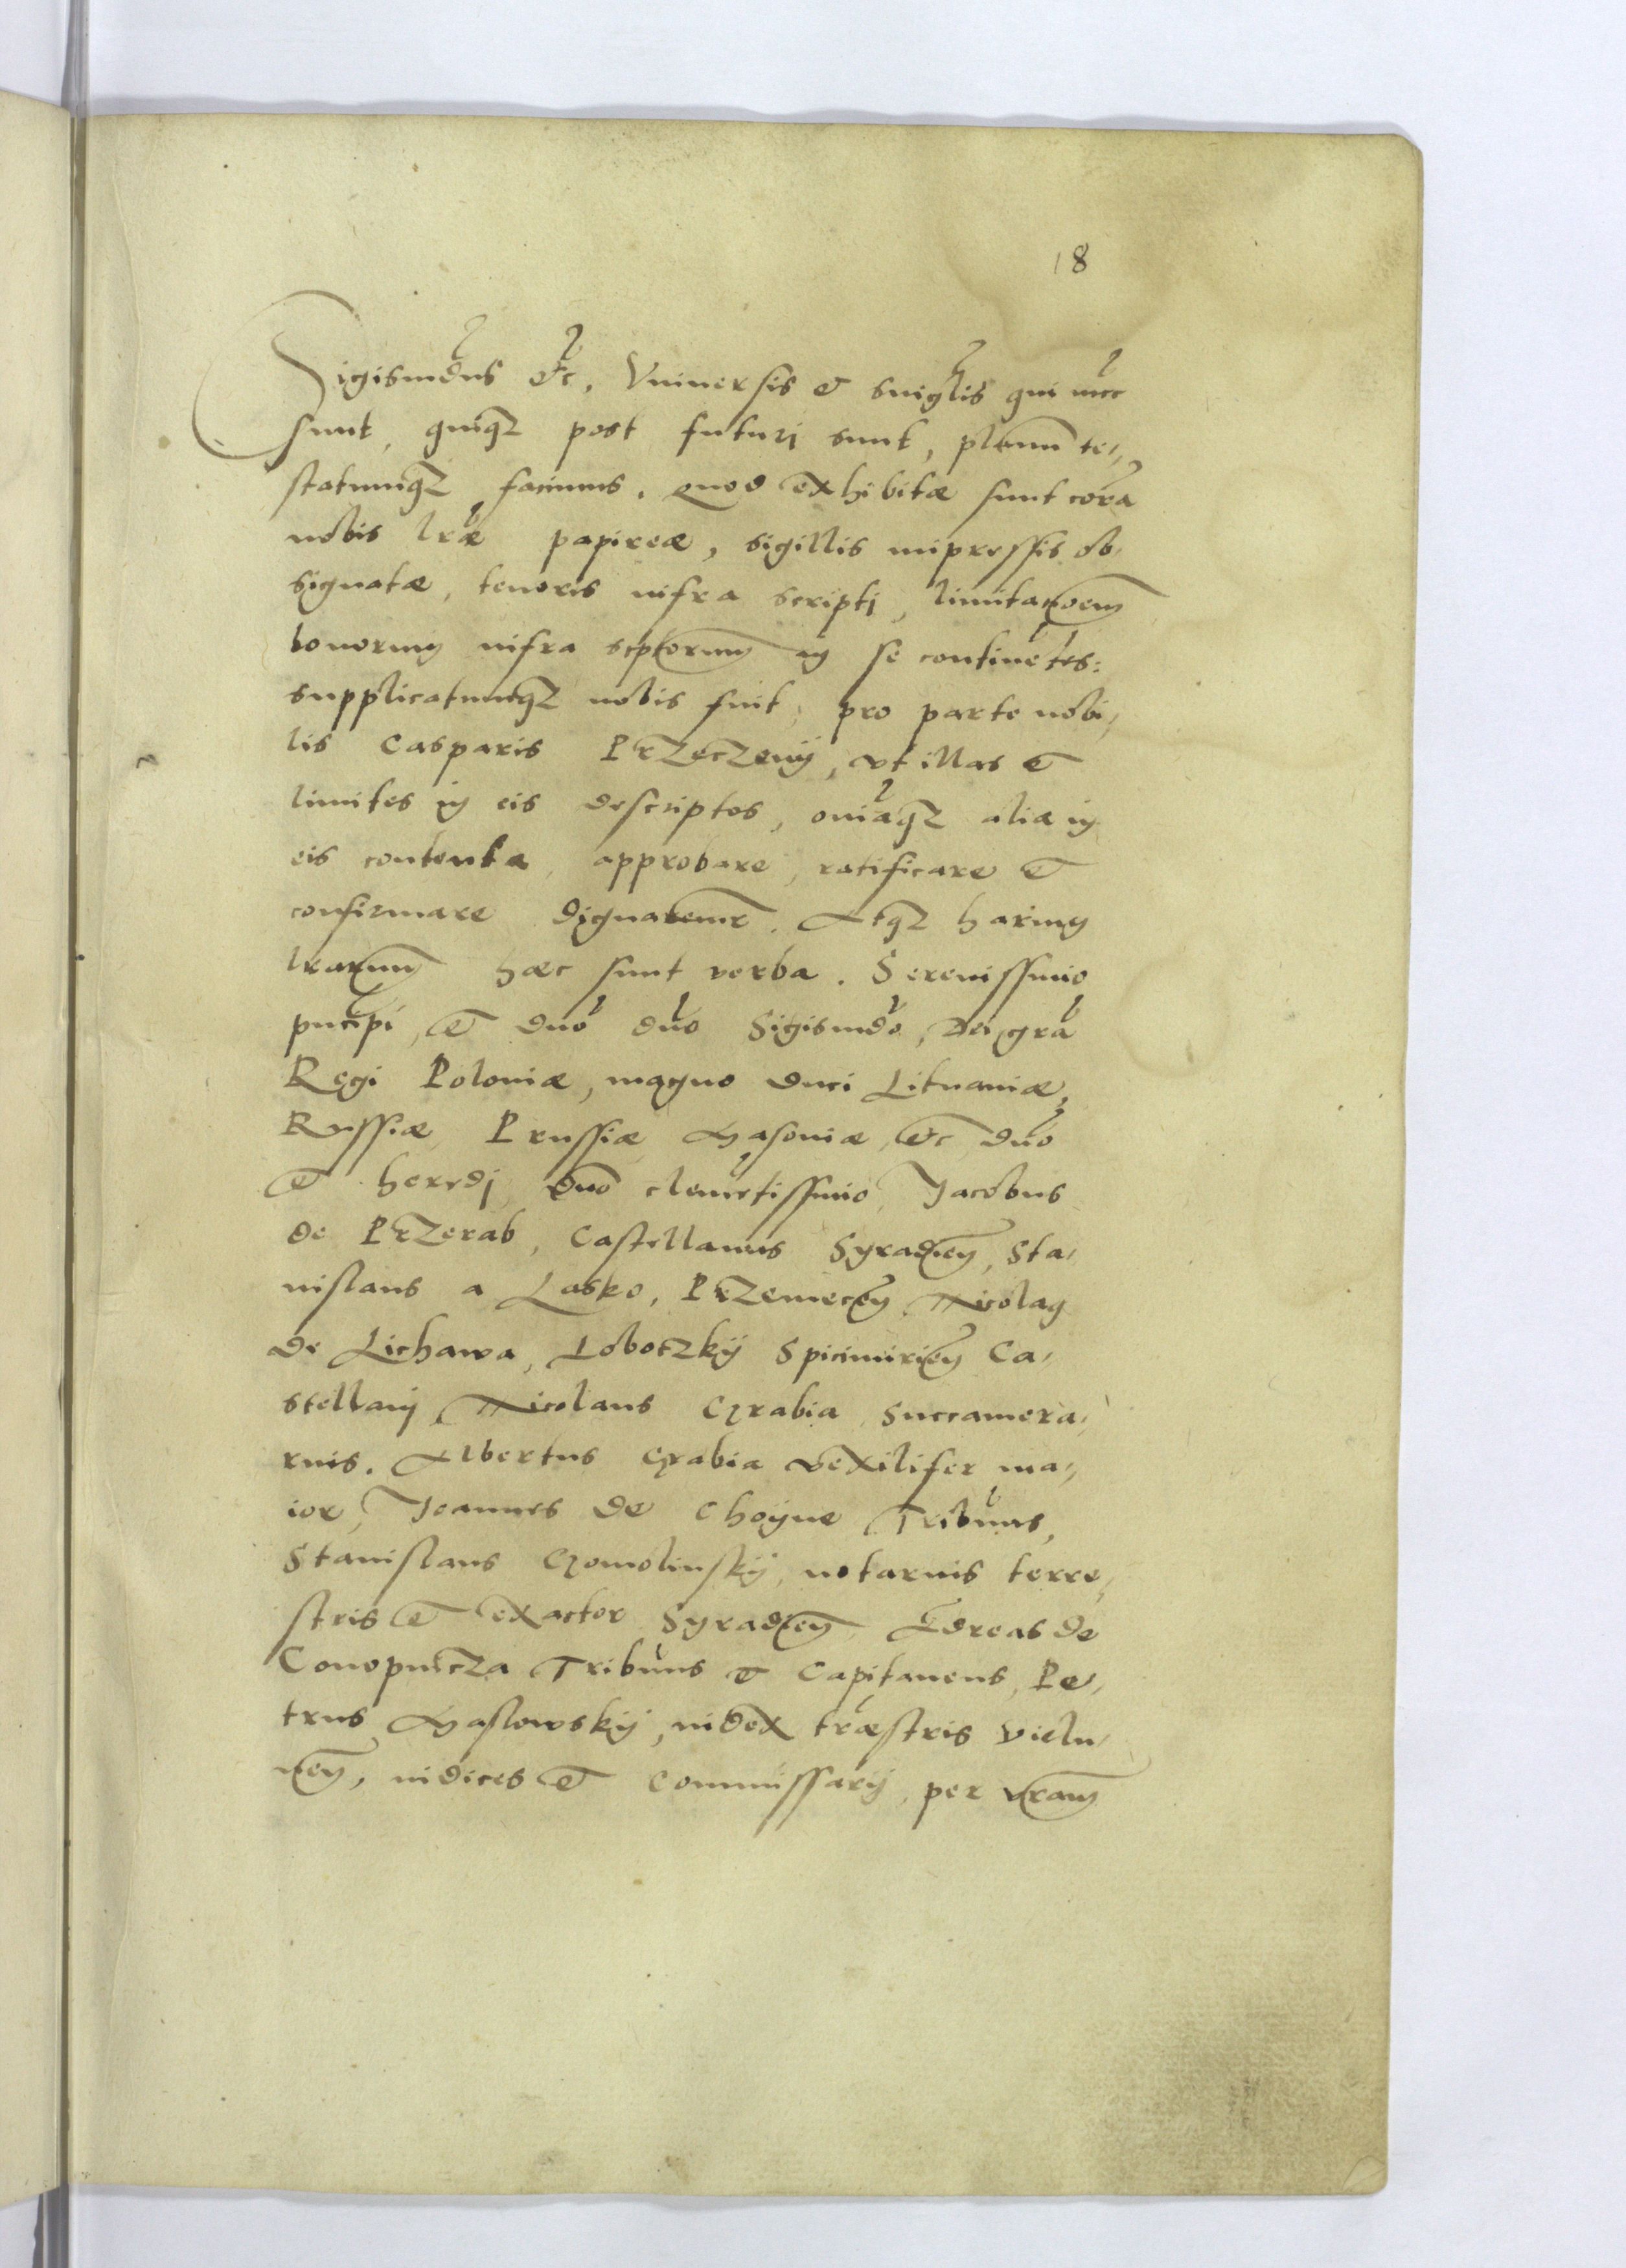 18
Sigismūdus etc. Vniuersis et singulis qui nūc
sunt, quiq3 post futuri sunt, planum te,
statumq3 facimus. Quod exhibitæ sunt corā
nobis lræ papireæ, sigillis impressis ob,
signatæ, tenoris infra scripti, limitationem
bonorum infra scptorum in se continētes:
supplicatumq3 nobis fuit, pro parte nobi,
lis Casparis Przeczenÿ, vt illas et
limites in eis descriptos, oīaq3 alia in
eis contenta, approbare, ratificare et
confirmare dignaremur. Atq3 harum
lrarum hæc sunt verba. Serenissimo
pncipi, et dno dno Sigismūdo, Dei gra
Regi Poloniæ, magno duci Lituaniæ,
Russiæ Prussiæ Masoviæ, etc dno
et heredj, dno clemētissimo, Jacobus
de Przerab, Castellanus Syradien, Sta,
nislaus a Lasko, Przemecen Nicolaus
de Lichawa, Lobotzkÿ Spicimirien Ca,
stellanj, Nicolaus Grabia Succamera,
rius. Albertus Grabia vexilifer ma,
ior, Joannes de Choÿne Tribūus,
Stanislaus Gomolinskÿ, notarius terre,
stris et exactor Syradien, Andreas de
Conopnicza Tribūus et Capitaneus, Pe,
trus Maslowskÿ, iudex træstris Vielu,
nen, iudices et Commissarij, per vram